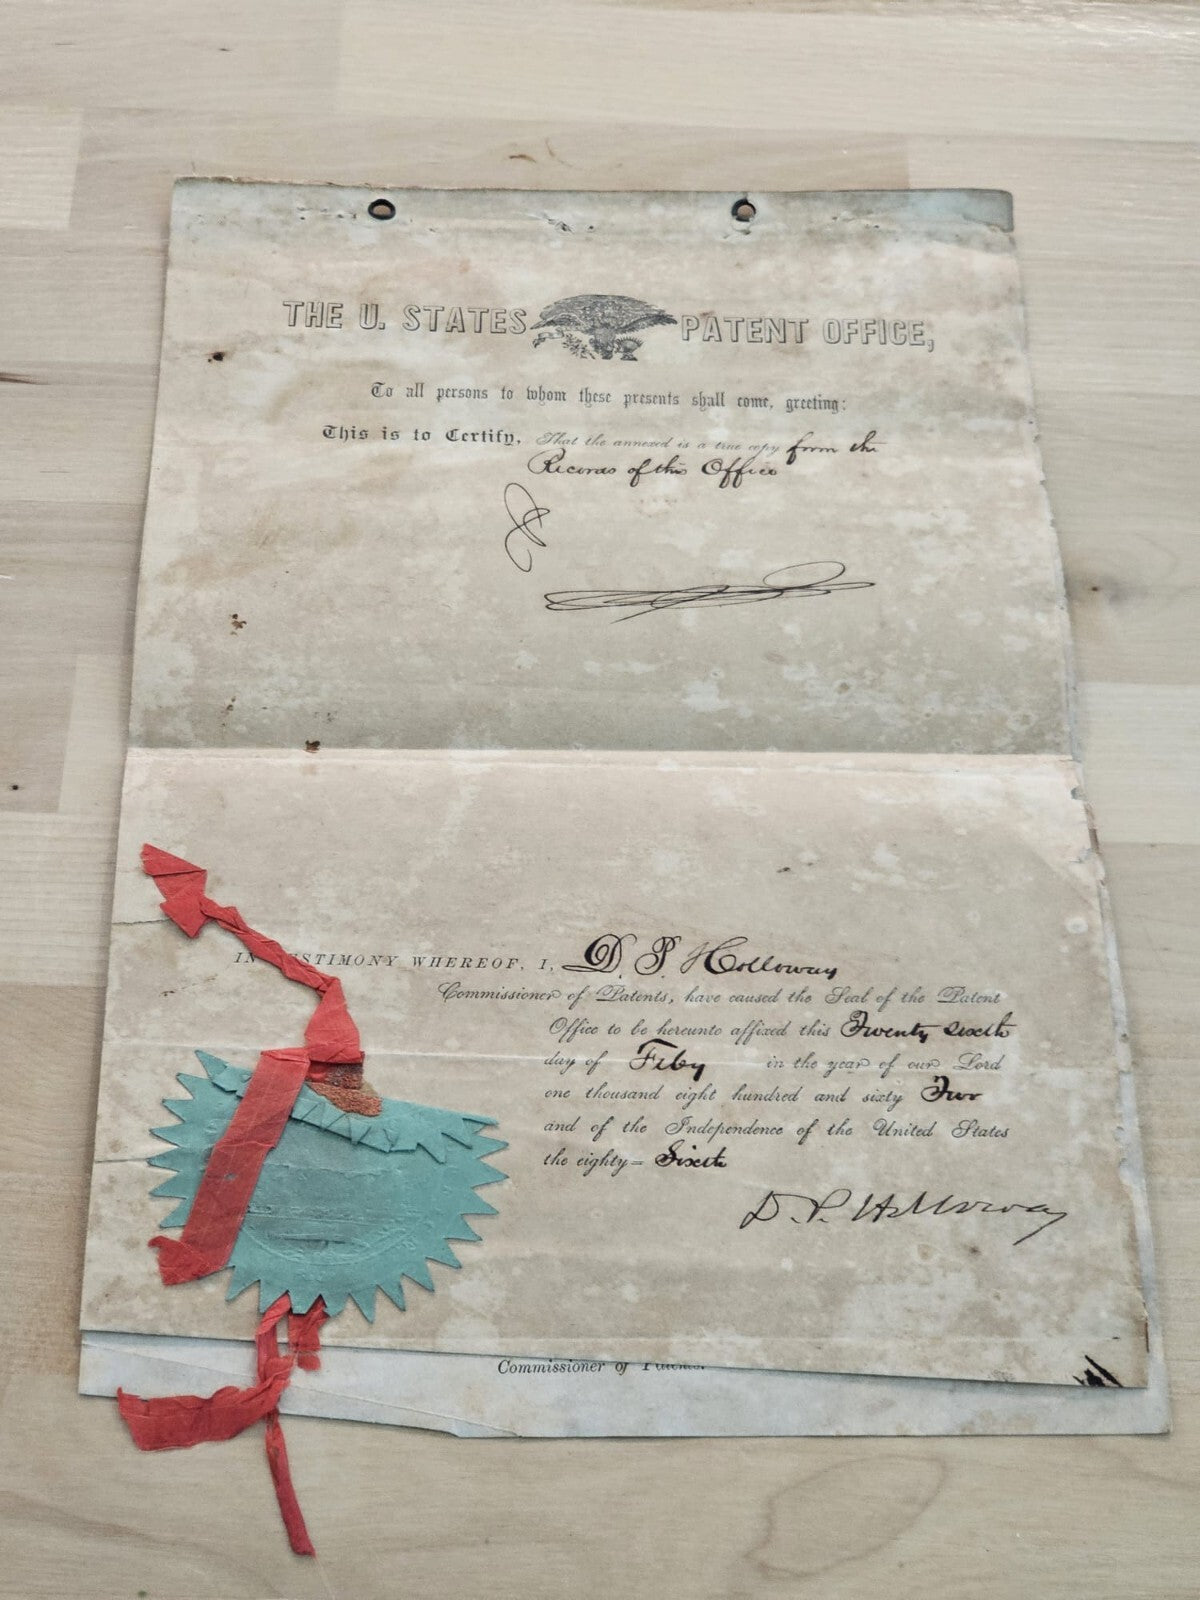 THE U. STATES PATENT OFFICE,
To all persons to whom these presents shall come, greeting:
This is to Certify, That the annexed is a true copy from the
Records of this Office
IN TESTIMONY WHEREOF, I, D. P. Holloway
Commissioner of Patents, have caused the Seal of the Patent
Office to be hereunto affixed this Twenty sixth
day of Feby in the year of our Lord
one thousand eight hundred and sixty Two
and of the Independence of the United States
the eighty= Sixth
D. P. Holloway
Commissioner of Patents.